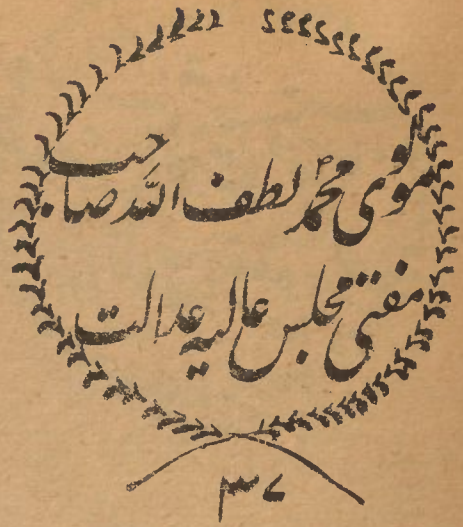 مولوی محمد لطف اللہ صاحب
مفتی مجلس عالیہ عدالت
۳۷